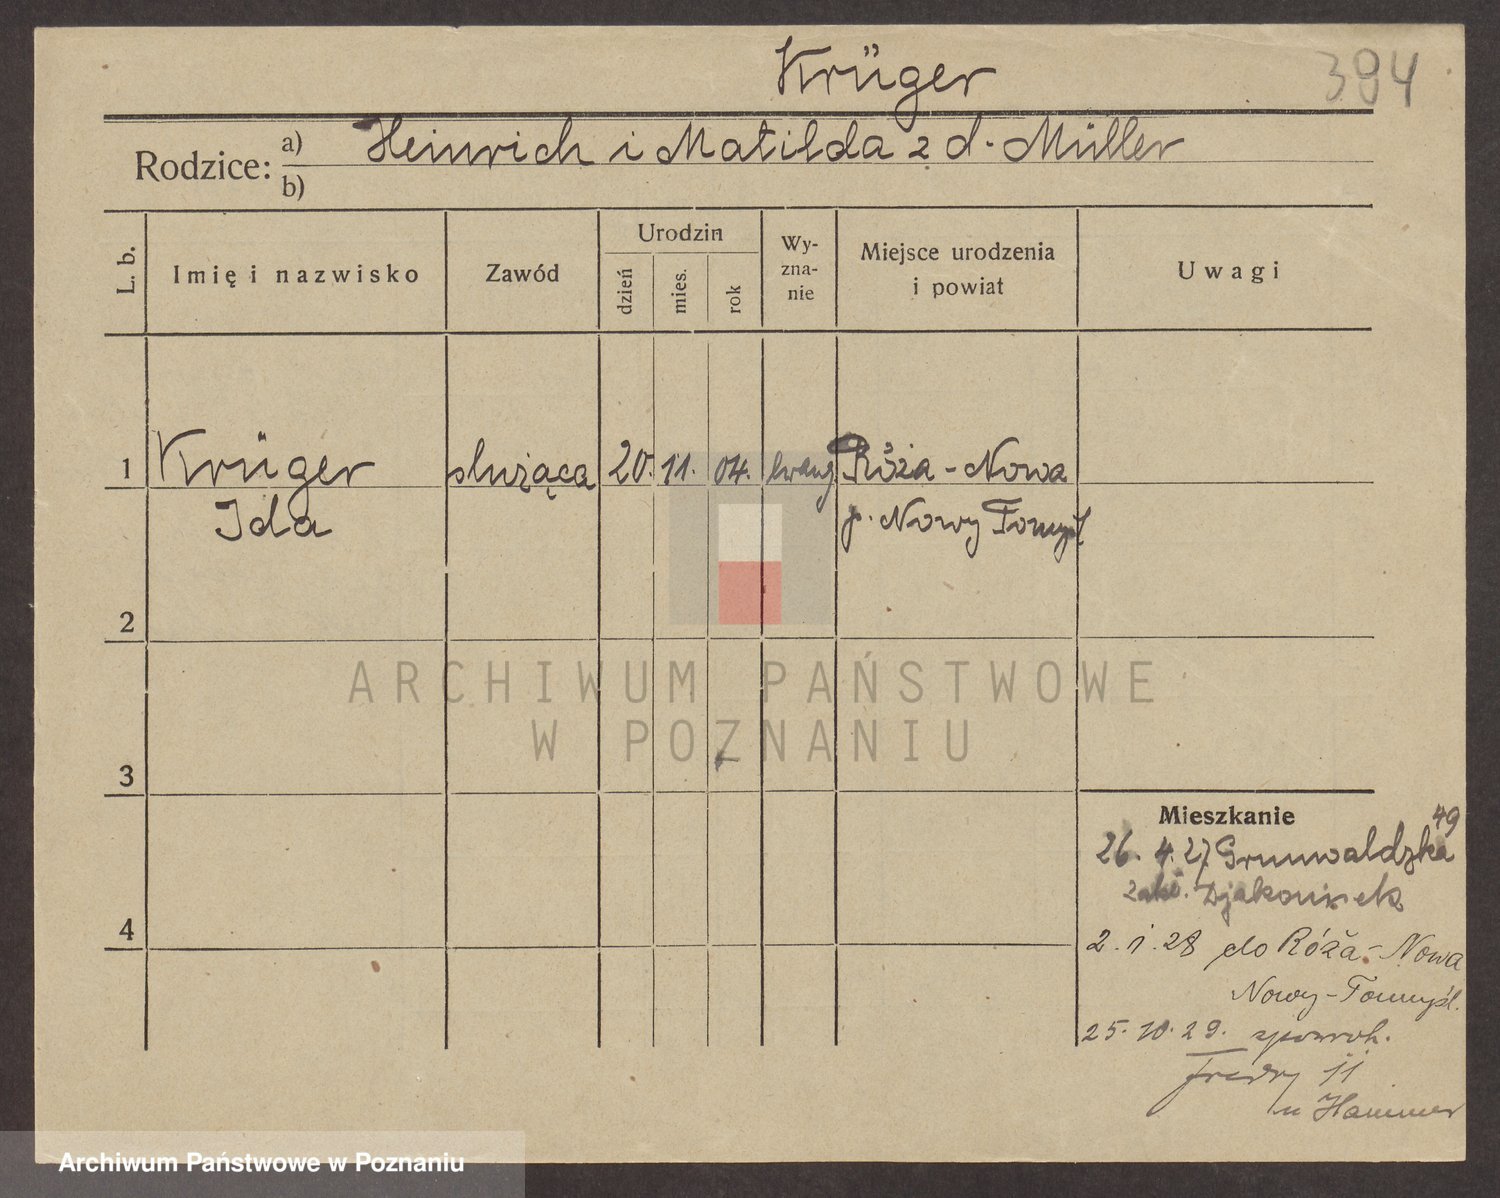 Krüger
394
Rodzice: a) Heinrich i Matilda z d. Müller
b)
L. b.
Imię i nazwisko
Zawód
Urodzin
dzień
mies.
rok
Wy-
zna-
nie
Miejsce urodzenia
i powiat
Uwagi
1 Krüger służąca 20. 11. 04. ewang. Róża-Nowa
Ida p. Nowy Tomyśl
2
3
4
Mieszkanie
49
26. 4. 27 Grunwaldzka
zakł. Djakonisek
2. 1. 28 do Róża-Nowa
Nowy-Tomyśl.
25. 10. 29. zpowrot.
Fredry 11
u Hammer
ARCHIWUM PAŃSTWOWE
W POZNANIU
Archiwum Państwowe w Poznaniu